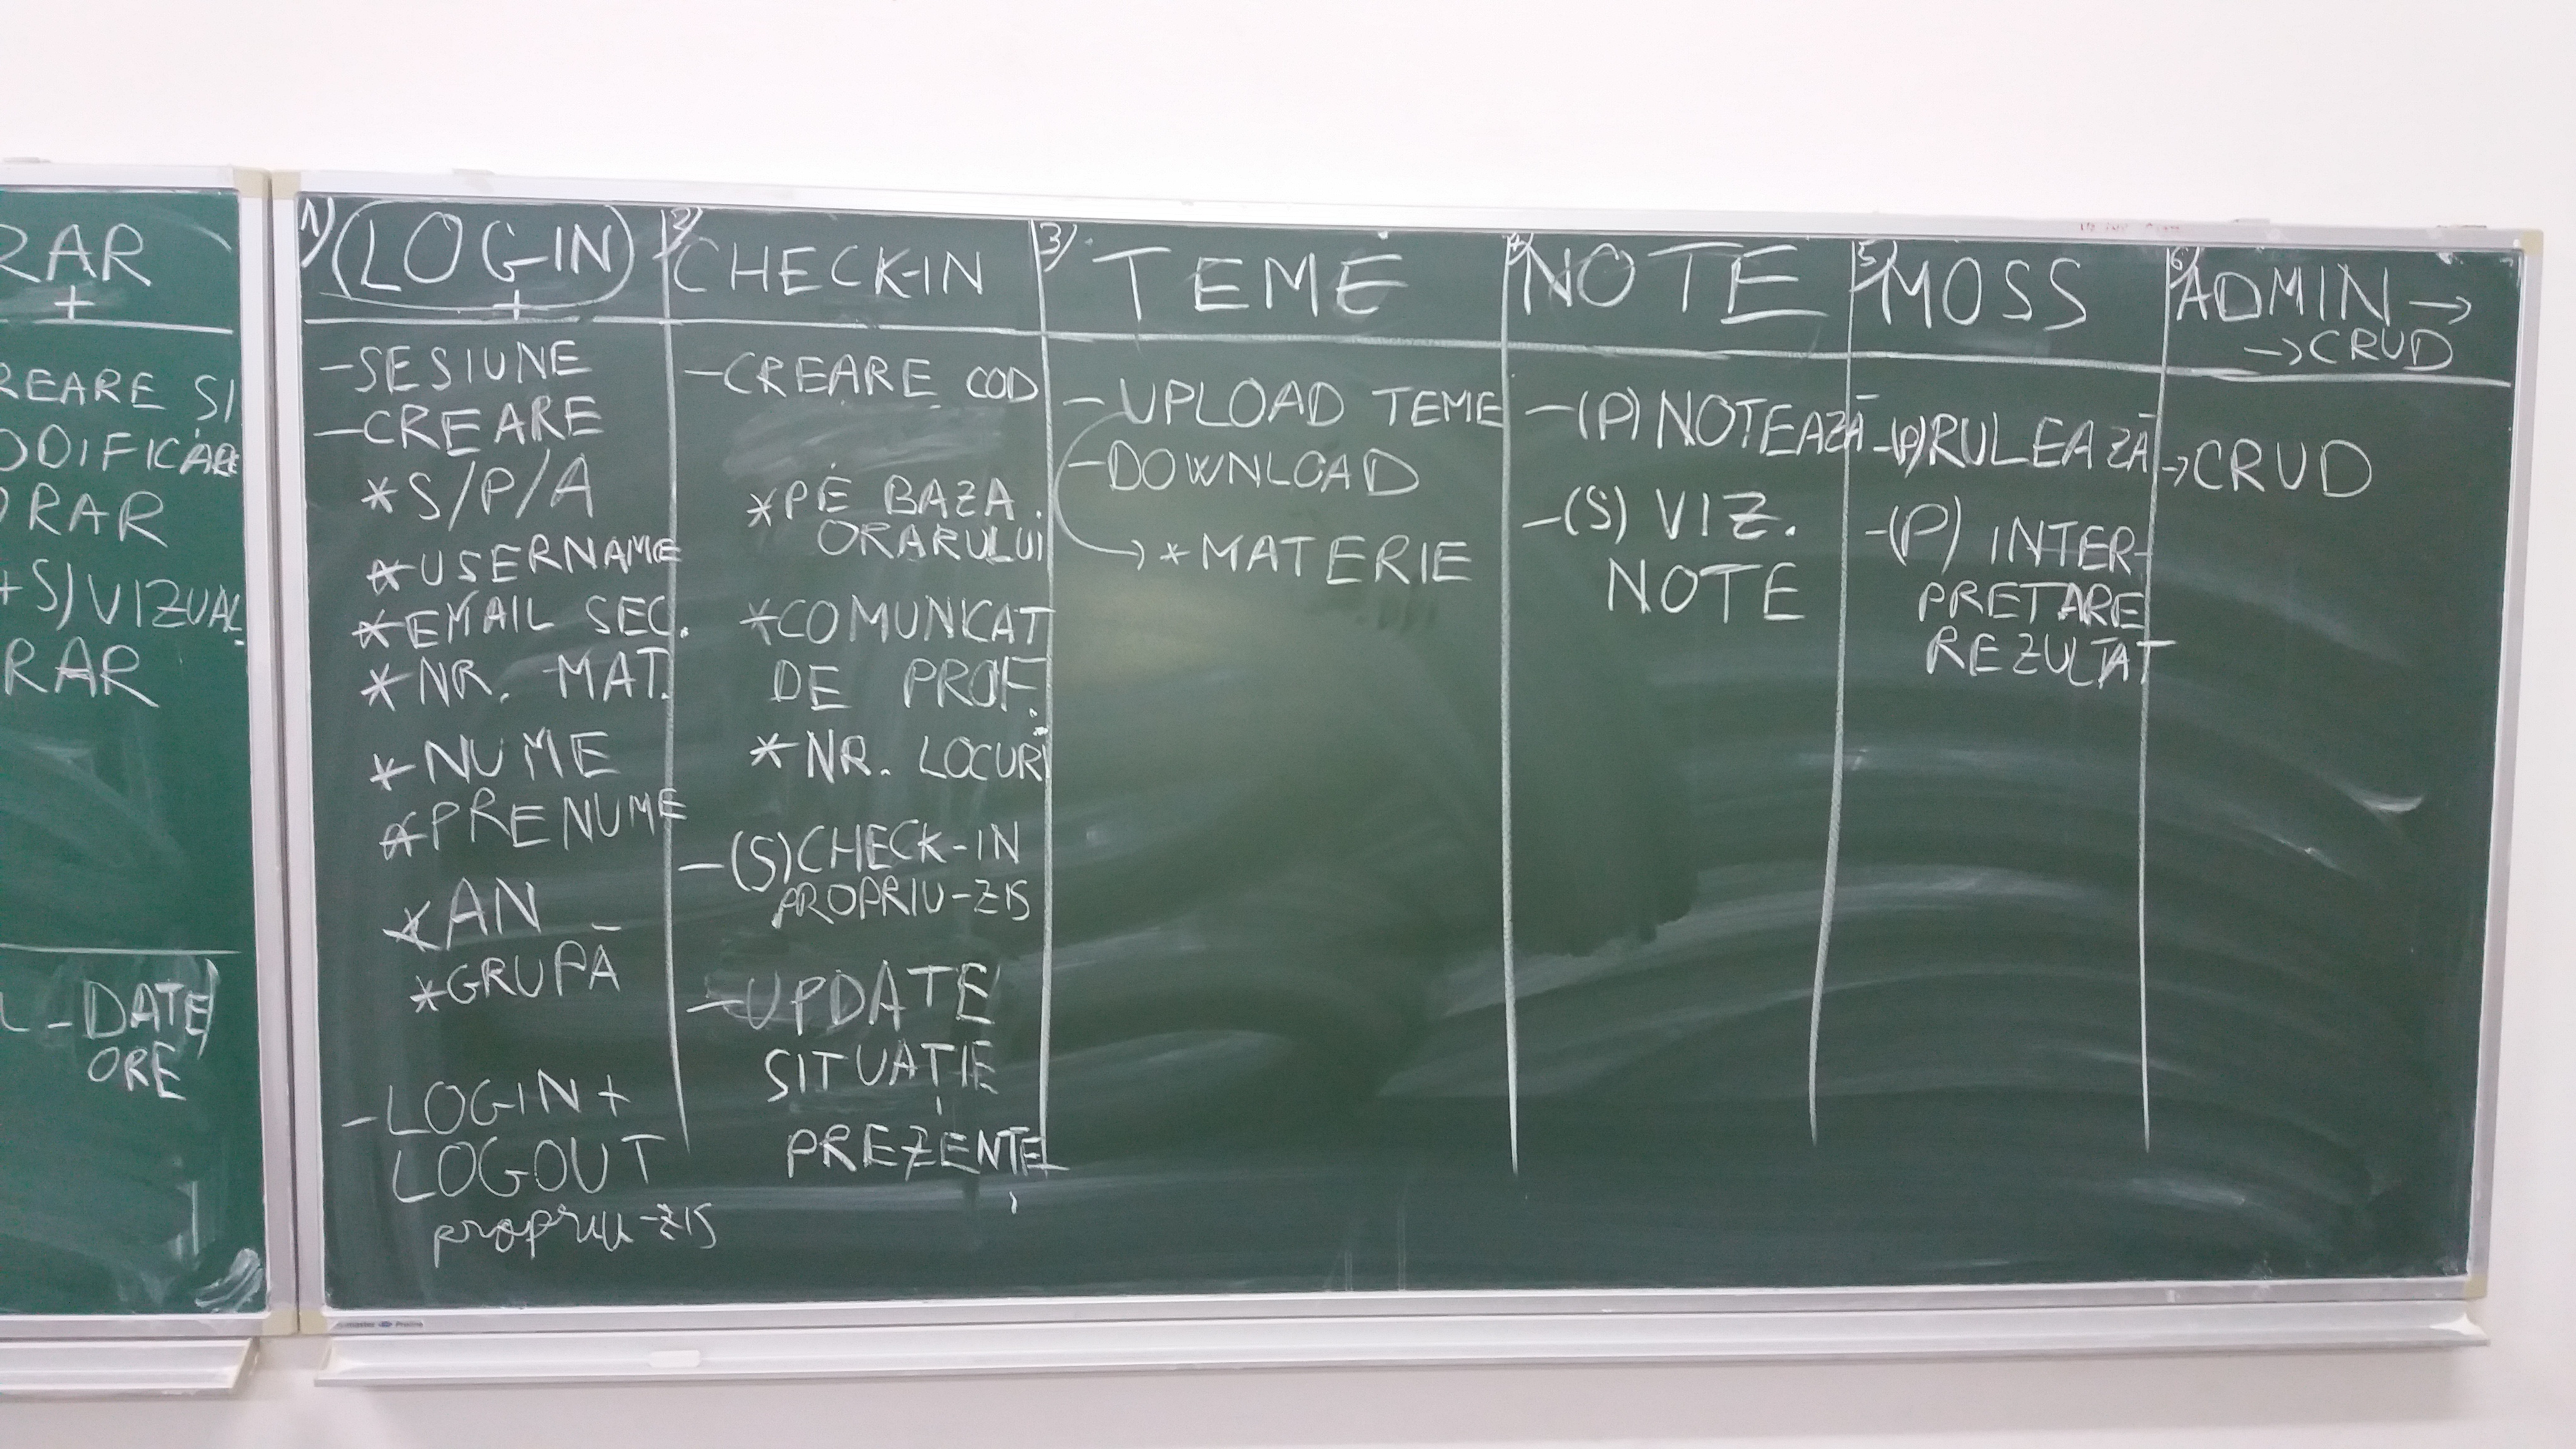 RAR
+
REARE ȘI
ODIFICARE
ORAR
+S) VIZUAL
RAR
-DATE
ORE
1) LOGIN
+
-SESIUNE
-CREARE
*S/P/A
*USERNAME
*EMAIL SEC.
*NR. MAT.
*NUME
*PRENUME
*AN
*GRUPĂ
-LOGIN+
LOGOUT
propriu-zis
2) CHECK-IN
-CREARE COD
*PE BAZA
ORARULUI
*COMUNICAT
DE PROF.
*NR. LOCURI
-(S)CHECK-IN
PROPRIU-ZIS
-UPDATE
SITUAȚIE
PREZENȚE
3) TEME
-UPLOAD TEME
-DOWNLOAD
→ *MATERIE
4) NOTE
-(P) NOTEAZĂ
-(S) VIZ.
NOTE
5) MOSS
-(P)RULEAZĂ
-(P) INTER-
PRETARE
REZULTAT
6) ADMIN →
→ CRUD
→ CRUD